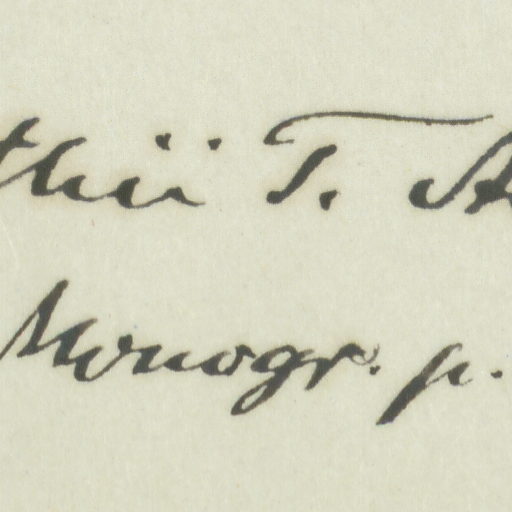 thii T. A
Monogr. p.